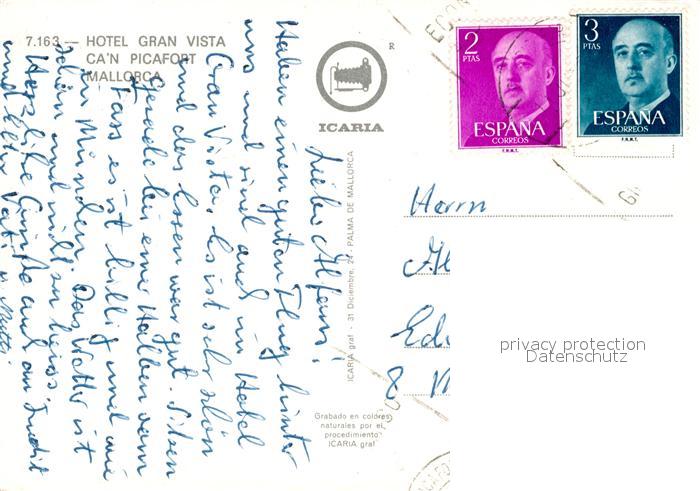 7.163 — HOTEL GRAN VISTA
CA'N PICAFORT
MALLORCA
R
ICARIA
ICARIA graf - 31 Diciembre, 24 - PALMA DE MALLORCA
Grabado en colores
naturales por el
procedimiento
ICARIA graf
2
PTAS
ESPAÑA
CORREOS
F.N.M.T.
3
PTAS
ESPAÑA
CORREOS
F.N.M.T.
Lieber Alfons!
Haben einen guten Flug hinter
uns und sind auch im Hotel
Gran Vista. Es ist sehr schön
und das Essen war gut. Sitzen
Gerade bei eine Halben vom
Fass es ist billig und wie
in München. Das Wetter ist
schön und nicht zu heiss.
Herzliche Grüsse auch an
und Vati u. Mutti
Herrn
Al
Ed
8 M
privacy protection
Datenschutz